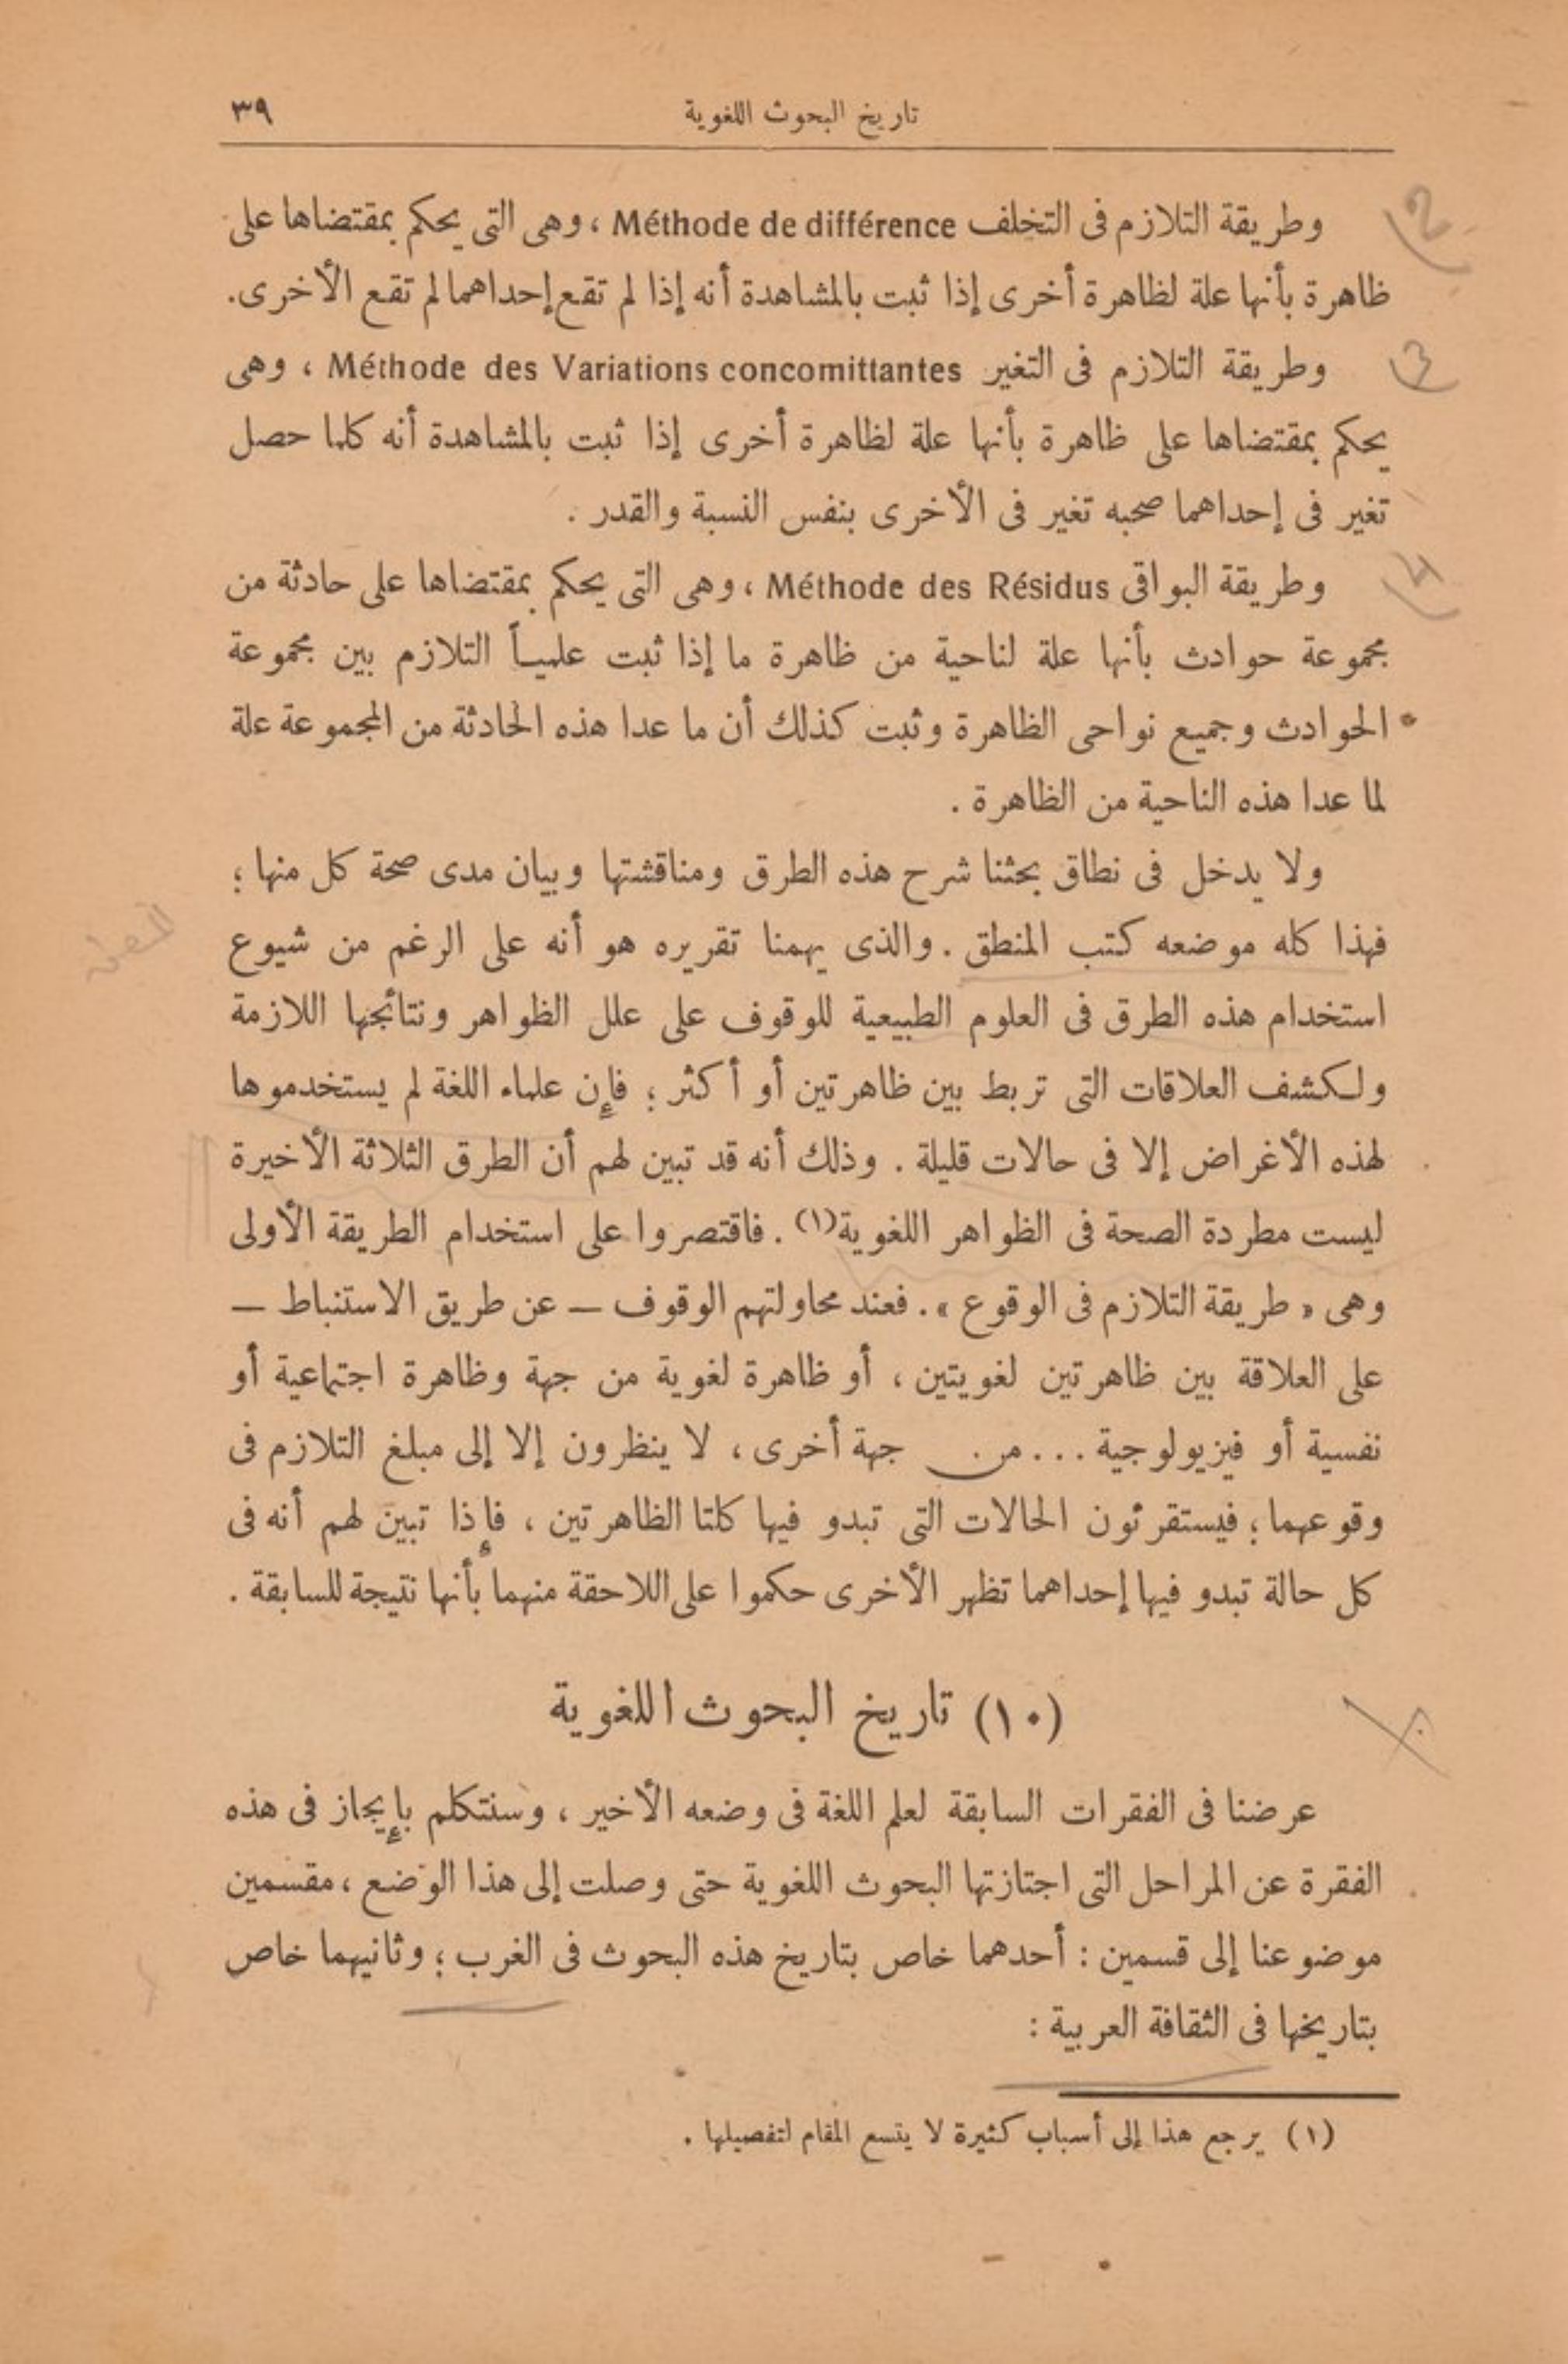 تاريخ البحوث اللغوية ٣٩
وطريقة التلازم فى التخلف Méthode de différence ، وهى التى يحكم بمقتضاها على
ظاهرة بأنها علة لظاهرة أخرى إذا ثبت بالمشاهدة أنه إذا لم تقع إحداهما لم تقع الأخرى.
وطريقة التلازم فى التغير Méthode des Variations concomittantes ، وهى
يحكم بمقتضاها على ظاهرة بأنها علة لظاهرة أخرى إذا ثبت بالمشاهدة أنه كلما حصل
تغير فى إحداهما صحبه تغير فى الأخرى بنفس النسبة والقدر .
وطريقة البواقى Méthode des Résidus ، وهى التى يحكم بمقتضاها على حادثة من
مجموعة حوادث بأنها علة لناحية من ظاهرة ما إذا ثبت علمياً التلازم بين مجموعة
الحوادث وجميع نواحى الظاهرة وثبت كذلك أن ما عدا هذه الحادثة من المجموعة علة
لما عدا هذه الناحية من الظاهرة .
ولا يدخل فى نطاق بحثنا شرح هذه الطرق ومناقشتها وبيان مدى صحة كل منها ؛
فهذا كله موضعه كتب المنطق . والذى يهمنا تقريره هو أنه على الرغم من شيوع
استخدام هذه الطرق فى العلوم الطبيعية للوقوف على علل الظواهر ونتائجها اللازمة
ولكشف العلاقات التى تربط بين ظاهرتين أو أكثر ؛ فإن علماء اللغة لم يستخدموها
لهذه الأغراض إلا فى حالات قليلة . وذلك أنه قد تبين لهم أن الطرق الثلاثة الأخيرة
ليست مطردة الصحة فى الظواهر اللغوية(١) . فاقتصروا على استخدام الطريقة الأولى
وهى « طريقة التلازم فى الوقوع » . فعند محاولتهم الوقوف — عن طريق الاستنباط —
على العلاقة بين ظاهرتين لغويتين ، أو ظاهرة لغوية من جهة وظاهرة اجتماعية أو
نفسية أو فيزيولوجية . . . من جهة أخرى ، لا ينظرون إلا إلى مبلغ التلازم فى
وقوعهما ؛ فيستقرئون الحالات التى تبدو فيها كلتا الظاهرتين ، فإذا تبين لهم أنه فى
كل حالة تبدو فيها إحداهما تظهر الأخرى حكموا على اللاحقة منهما بأنها نتيجة للسابقة .
(١٠) تاريخ البحوث اللغوية
عرضنا فى الفقرات السابقة لعلم اللغة فى وضعه الأخير ، وسنتكلم بإيجاز فى هذه
الفقرة عن المراحل التى اجتازتها البحوث اللغوية حتى وصلت إلى هذا الوضع ، مقسمين
موضوعنا إلى قسمين : أحدهما خاص بتاريخ هذه البحوث فى الغرب ؛ وثانيهما خاص
بتاريخها فى الثقافة العربية :
(١) يرجع هذا إلى أسباب كثيرة لا يتسع المقام لتفصيلها .
2
3
4